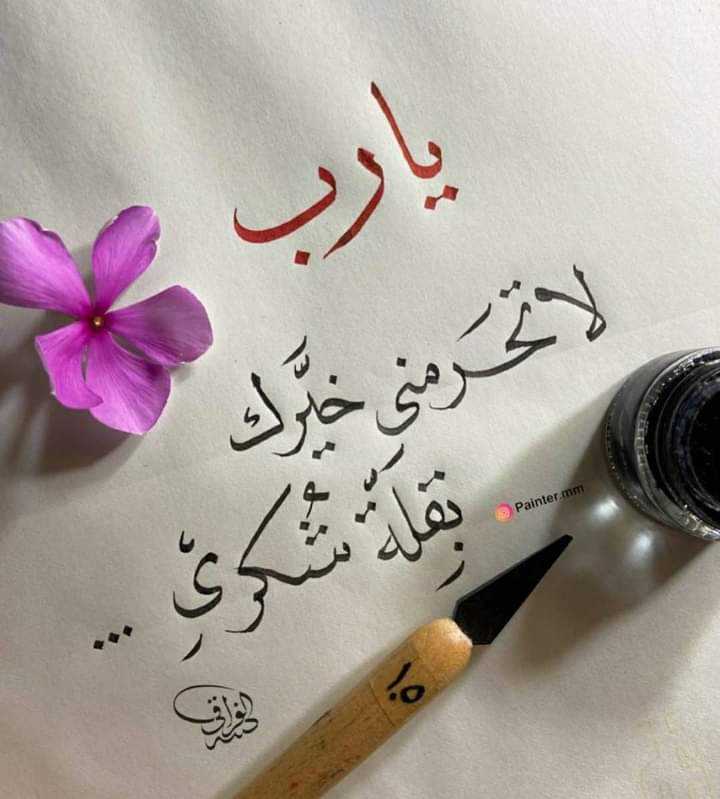 يارب
لا تحَرمني خيَّرك
بِقلَّة شُكريِّ ...
Painter.mm
١٥